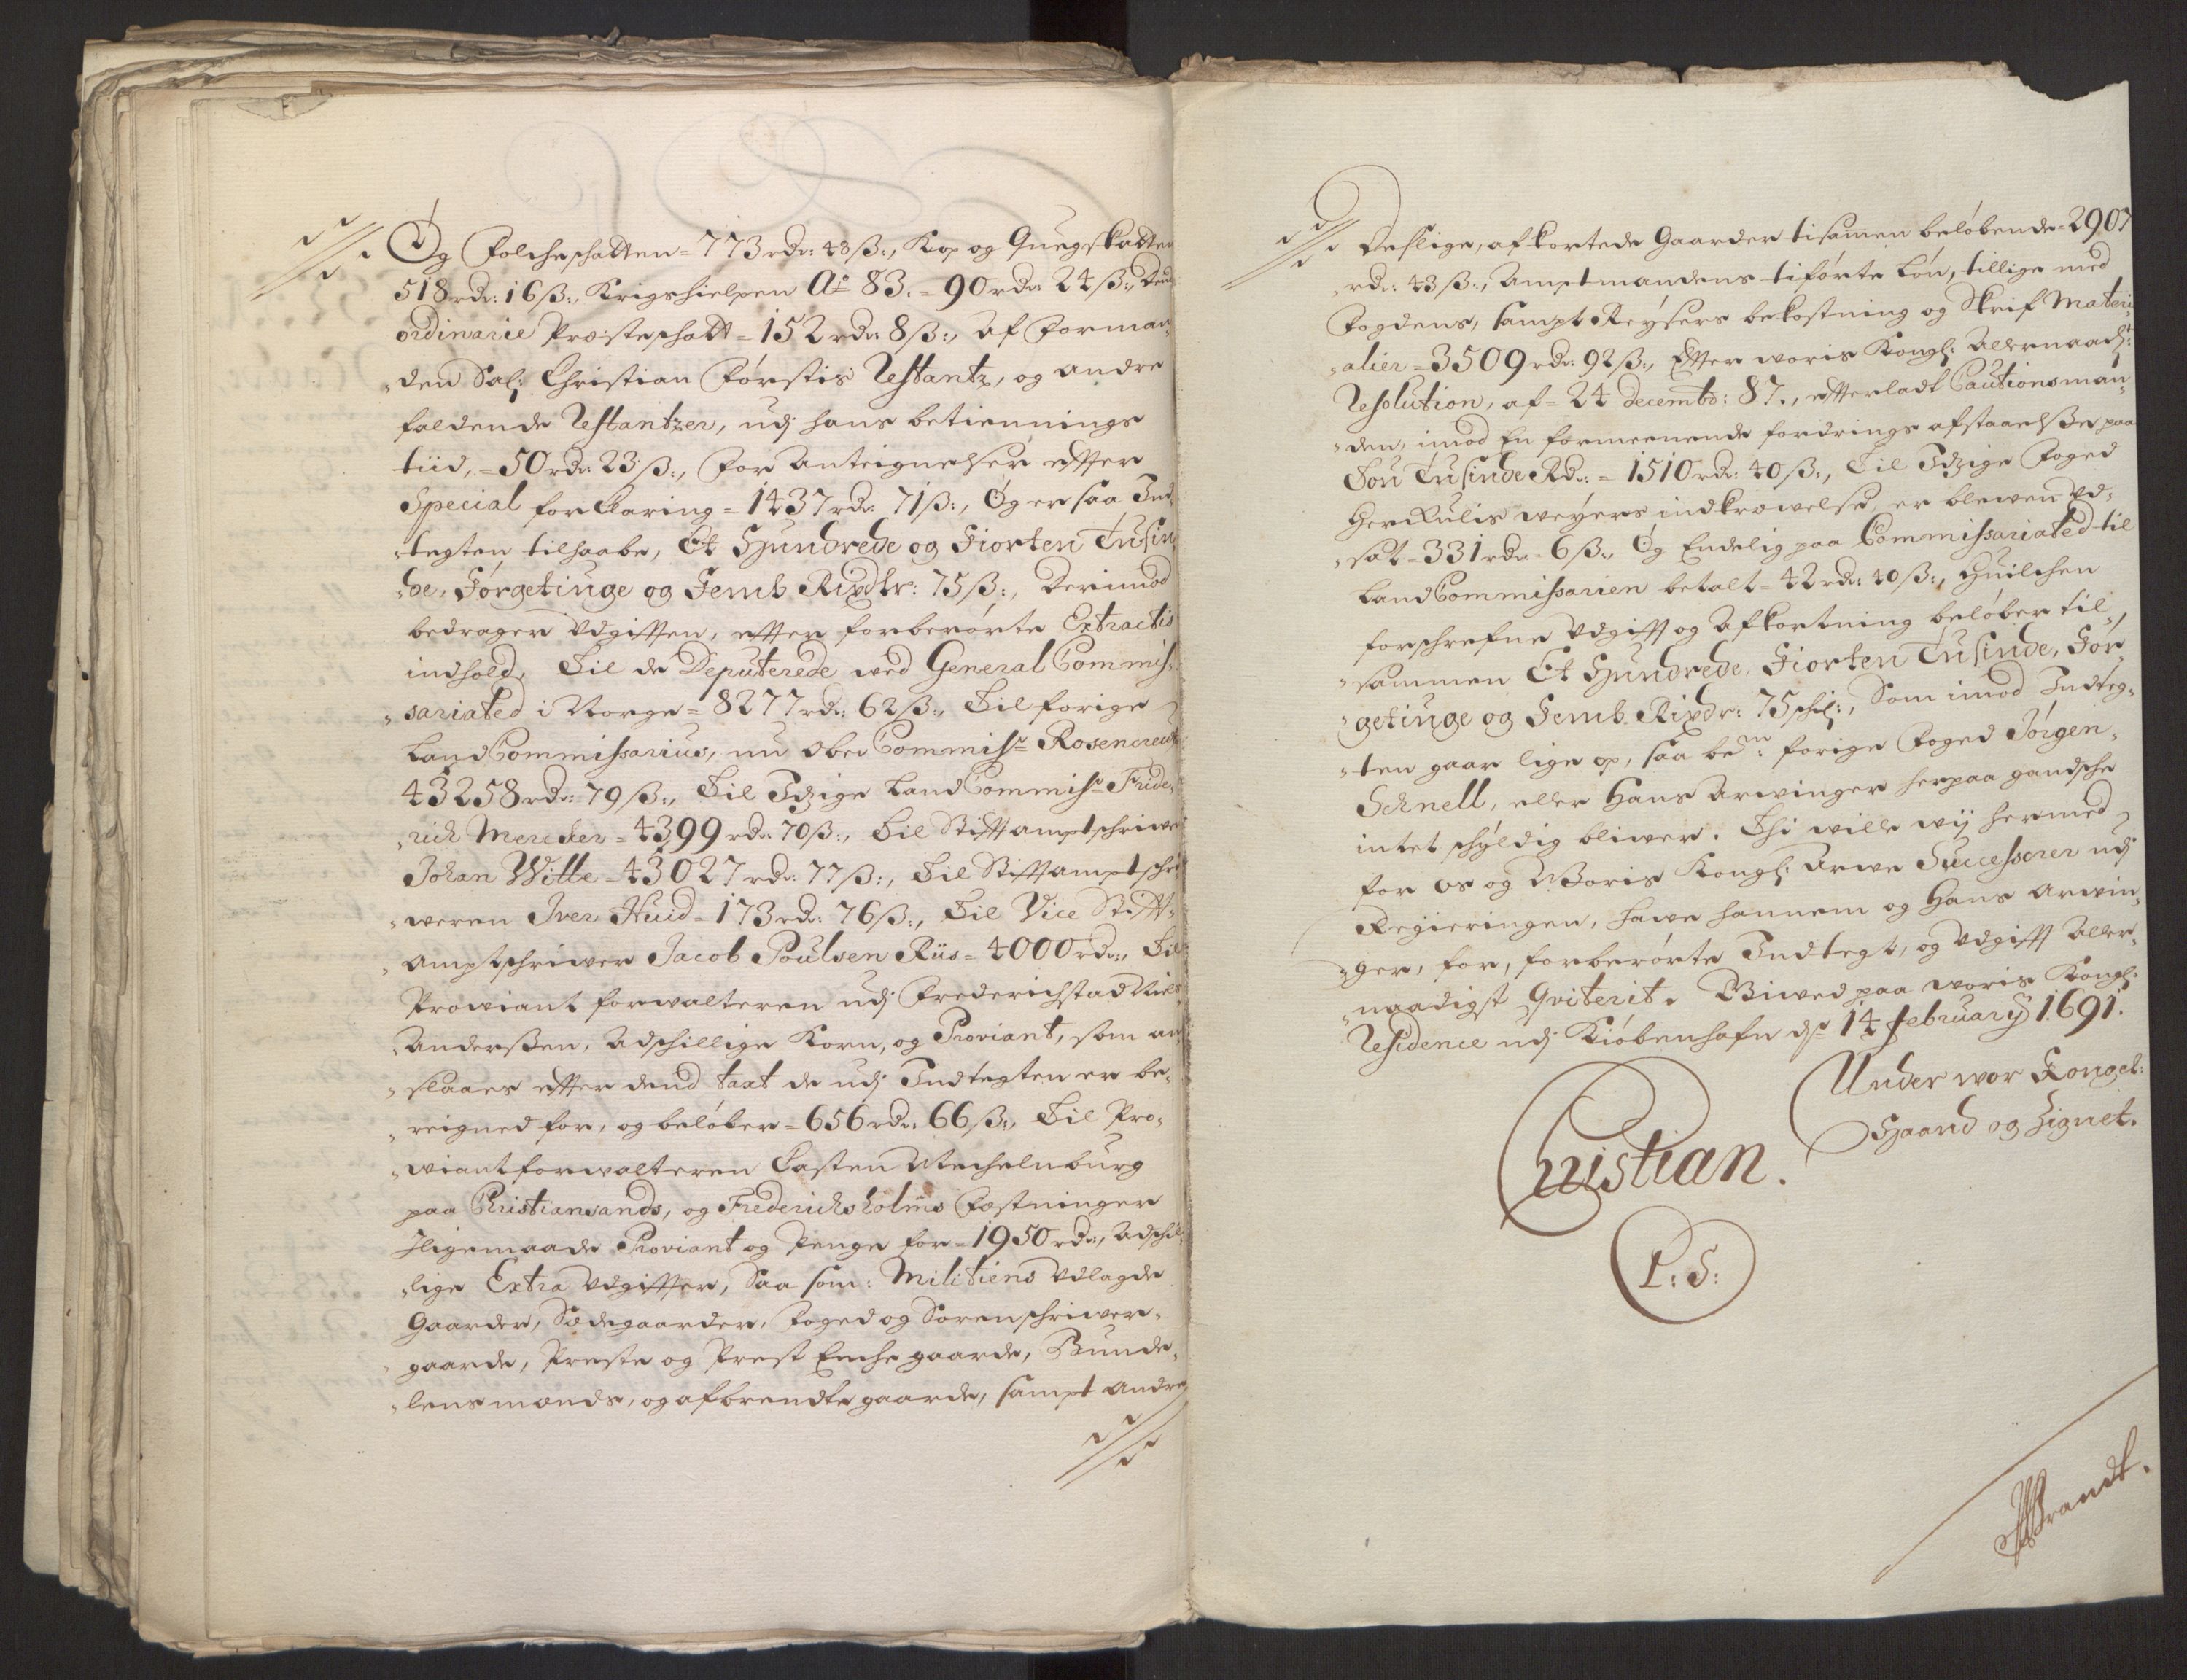 Og Folcheschatten = 773 rdr: 48 ß:, Kop og Quegskatten
518 rdr: 16 ß:, Krigshielpen Ao 83. = 90 rdr 24 ß:, Dend
ordinarie Præsteschatt = 152 rdr: 8 ß:, Af Forman„
„den Sal: Christian Førstis Restantz, og andre
faldende Restantzer, udj hans betiennings
tiid, = 50 rdr 23 ß:, For Anteignelser effter
Special forklaring = 1437 rdr: 71 ß:, Og er saa Ind„
„tegten tilhaabe, Et Hundrede og Fiorten Tusin„
„de, Førgetiuge og Femb Rixdlr: 75 ß:, Derimod
bedrager Udgifften, effter forberørte Extractis
indhold, Til de Deputerede ved General Commis„
„sariated i Norge = 8277 rdr: 62 ß:, Til forige
Land Commissarius, nu Ober Commisr Rosencreutz
43258 rdr: 79 ß:, Til Itzige Land Commisr Fride„
„rich Mercker = 4399 rdr 70 ß:, Til Stifftamptschriver
Johan Wille = 43027 rdr: 77 ß:, Til Stifftamptschri„
„weren Iver Huid = 173 rdr: 76 ß:, Til Vice Stifft„
„amptschriwer Jacob Poulsen Riis = 4000 rdr:, Til
Prowiant forwalteren udj Frederichstad Niels
Anderßen, Adschillige Korn, og Proviant, som an„
„slaaes effter dend taxt de udj Indtegten er be„
„reigned for, og beløber = 656 rdr: 66 ß:, Til Pro„
„wiantforwalteren Casten Mechelnburg
paa Christiansands, og Frederichsholms Fæstninger
Iligemaade Proviant og Penge for = 1950 rdr:, Adschil„
„lige Extra Udgiffter, Saa som: Militiens Udlagde
Gaarder, Sædegaarder, Foged og Sorenschriwer„
gaarde, Preste og Prest Enche gaarde, Bunde„
„lensmænds, og afbrendte gaarde, sampt andre
Deslige, afkortede Gaarder tilsamen beløbende = 2907
rdr: 43 ß:, Amptmandens tiførte Løn, tillige med
Fogdens, sampt Reysers bekostning og Skrif Materi„
„alier = 3509 rdr: 92 ß:, Effter woris Kongl: Allernaad:st
Resolution, af = 24 decembr: 87., efterladt Cautionsman„
„den, imod En formeenende fordrings afstaaelße paa
Tou Tusinde Rdr: = 1510 rdr: 40 ß:, Til Itzige Foged
Herkulis Weyers indkrævelse er blewen Ud„
„sat = 331 rdr = 6 ß:, Og Endelig paa Commissariated til
Land Commissarien betalt = 42 rdr: 40 ß:, Huilchen
forschrefne Udgifft og Afkortning beløber til„
„sammen Et Hundrede, Fiorten Tusinde, Før„
„getiuge og Femb. Rixdr: 75 schil:, Som imod Indteg„
„ten gaar lige op, saa bem: forige Foged Jørgen
Schnell, eller Hans Arwinger herpaa gandsche
intet schyldig bliwer. Thi wille wij hermed
for os og Woris Kongl: Arwe Successorer udj
Regieringen, hawe hannem og Hans Arwin„
„ger, for, forberørte Indtegt, og Udgifft Aller„
„naadigst Qviterit. Giwed paa woris Kongl:
Residence udj Kiøbenhafn dr 14 february 1691.
Under wor Kongel:
Haand og Zignet.
Christian.
L: S:
Brandt.